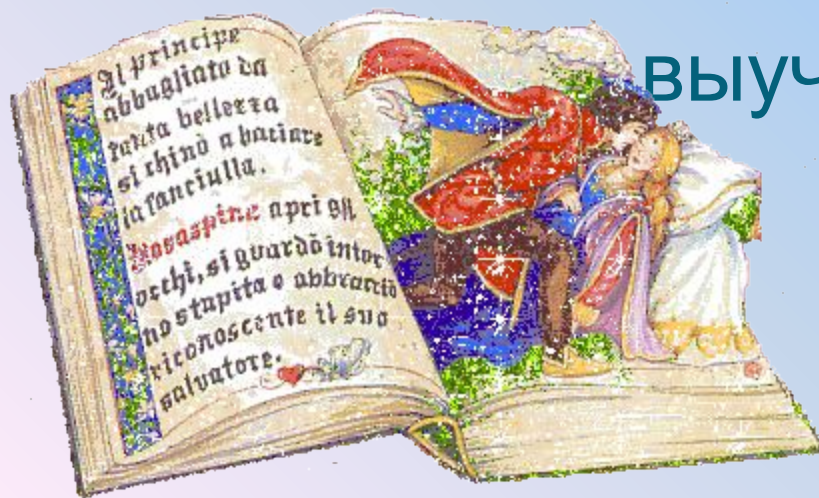 Il principe
abbagliato da
tanta bellezza
si chinò a baciare
la fanciulla.
Rosaspina aprì gli
occhi, si guardò intor
no stupita e abbracciò
riconoscente il suo
salvatore.
выуч